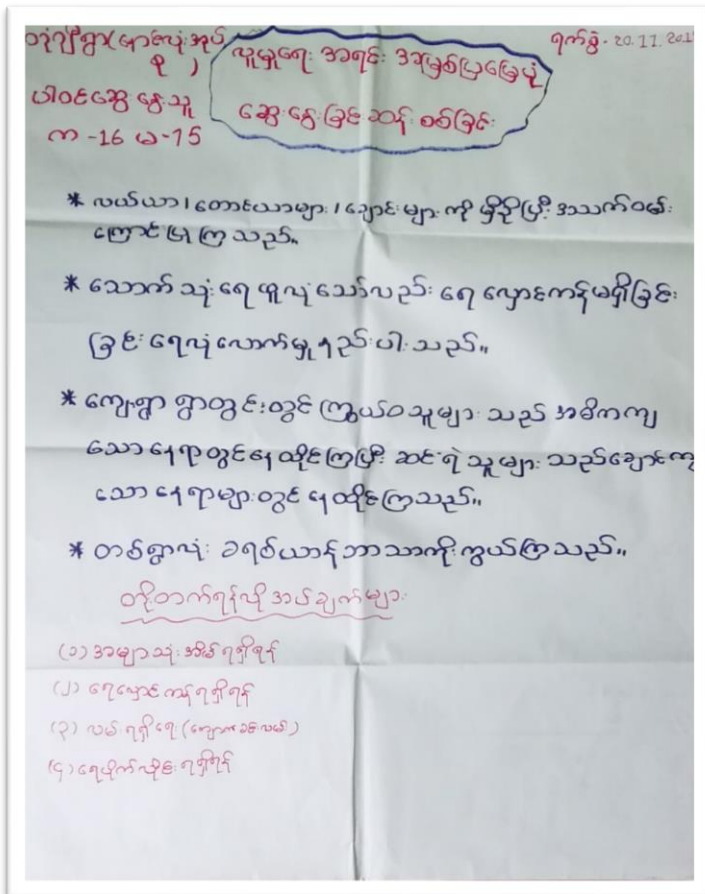 တုံဂျီရွာ (မှောင်လုံးအုပ်စု)
ရက်စွဲ - 20.11.201
လူမှုရေး အရင်း အမြစ်ပြမြေပုံ
ဆွေးနွေးခြင်း ဆန်းစစ်ခြင်း
ပါဝင်ဆွေးနွေးသူ
က - 16 မ - 15
* လယ်ယာ၊ တောင်ယာများ၊ ချောင်းများ ကို မှီခိုပြီး အသက်ဝမ်း
ကြောင်းပြုကြသည်။
* သောက်သုံးရေ ထူလုံသော်လည်း ရေလှောင်ကန်မရှိခြင်း
ခြင်း ရေလုံလောက်မှုနည်းပါးသည်။
* ကျေးရွာ ရွာတွင်းတွင် ကြွယ်ဝသူများ သည် အဓိကကျ
သော နေရာတွင်နေထိုင်ကြပြီး ဆင်းရဲသူများ သည်ချောင်ကျ
သော နေရာများတွင် နေထိုင်ကြသည်။
* တစ်ရွာလုံး ခရစ်ယာန်ဘာသာကိုးကွယ်ကြသည်။
တိုးတက်ရန်လိုအပ်ချက်များ
(၁) အများသုံးအိမ်ရရှိရန်
(၂) ရေလှောင်ကန်ရရှိရန်
(၃) လမ်းရရှိရေး (ကျောက်ခင်းလမ်း)
(၄) ရေပိုက်လိုင်းရရှိရန်